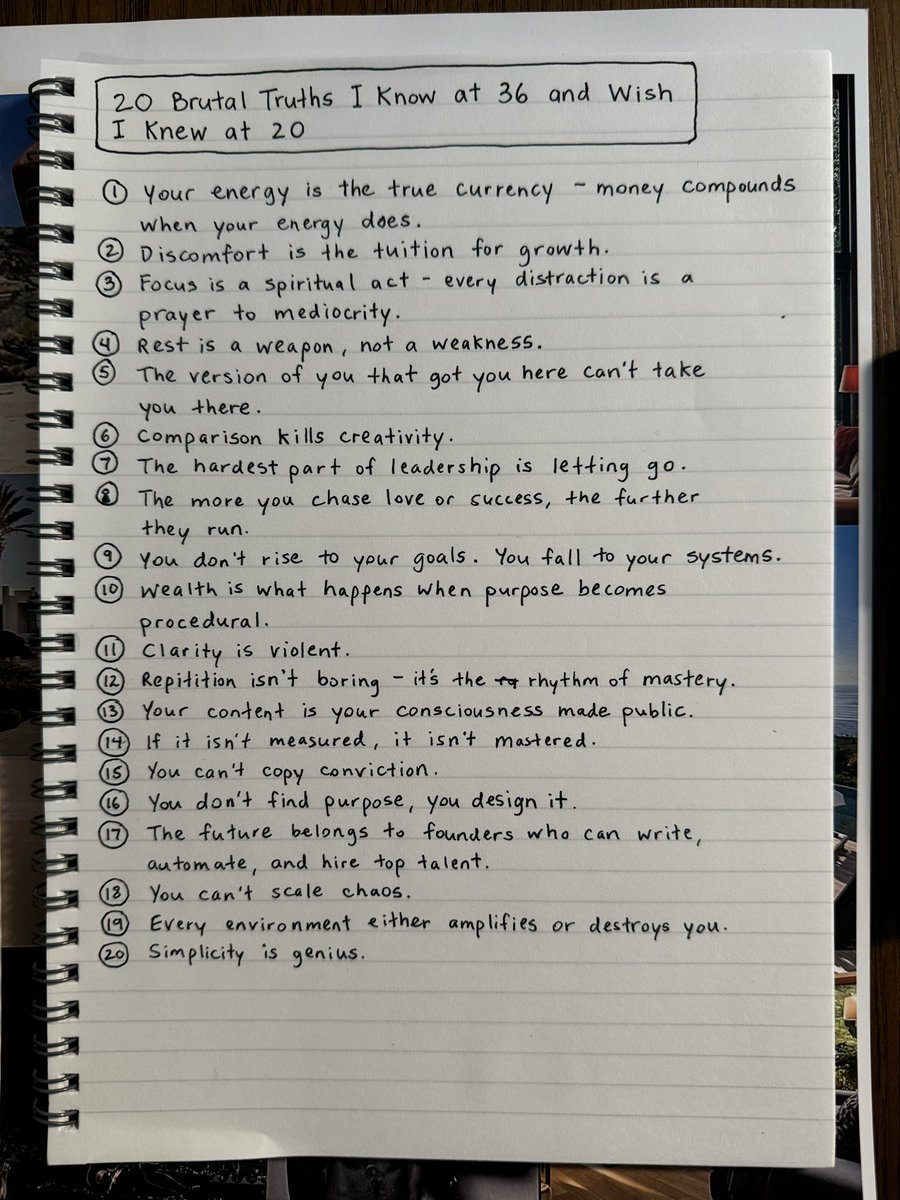 20 Brutal Truths I Know at 36 and Wish
I Knew at 20
① Your energy is the true currency – money compounds
when your energy does.
② Discomfort is the tuition for growth.
③ Focus is a spiritual act – every distraction is a
prayer to mediocrity.
④ Rest is a weapon, not a weakness.
⑤ The version of you that got you here can't take
you there.
⑥ Comparison kills creativity.
⑦ The hardest part of leadership is letting go.
⑧ The more you chase love or success, the further
they run.
⑨ You don't rise to your goals. You fall to your systems.
⑩ Wealth is what happens when purpose becomes
procedural.
⑪ Clarity is violent.
⑫ Repitition isn't boring – it's the rhythm of mastery.
⑬ Your content is your consciousness made public.
⑭ If it isn't measured, it isn't mastered.
⑮ You can't copy conviction.
⑯ You don't find purpose, you design it.
⑰ The future belongs to founders who can write,
automate, and hire top talent.
⑱ You can't scale chaos.
⑲ Every environment either amplifies or destroys you.
⑳ Simplicity is genius.